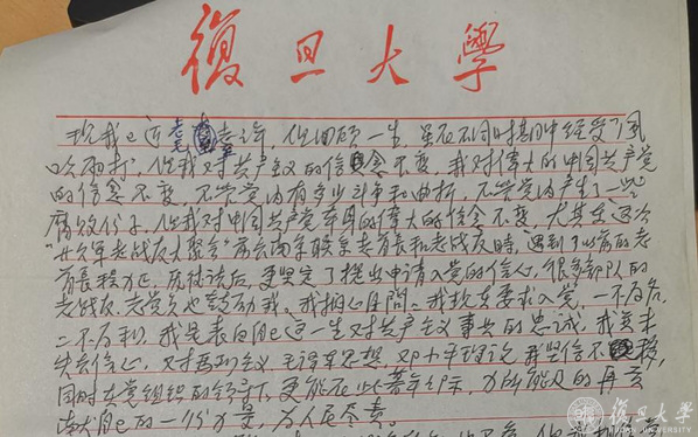 復旦大學
现我已近老耄老年,但回顾一生,虽在不同时期中经受了风
吹雨打,但我对共产主义的信念不变,我对伟大的中国共产党
的信念不变,不管党内有多少斗争和曲折,不管党内产生了一些
腐败份子,但我对中国共产党本身的伟大的信念不变,尤其在这次
老战友大聚会"前去南京联系老首长和老战友时,遇到了以前的老
首长程力正,历经谈后,更坚定了提出申请入党的信心,很多部队的
老战友、老党员也鼓动我。我扪心自问,我现在要求入党,一不为名,
二不为利,我是表白自己这一生对共产主义事业的忠诚,我并未
失去信心,对马列主义 毛泽东思想,邓小平理论 我坚信不移,
同时在党组织的领导下,更能在 力所能及的再贡
献自己的一份力量,为人民尽责。
復旦大學
FUDAN UNIVERSITY